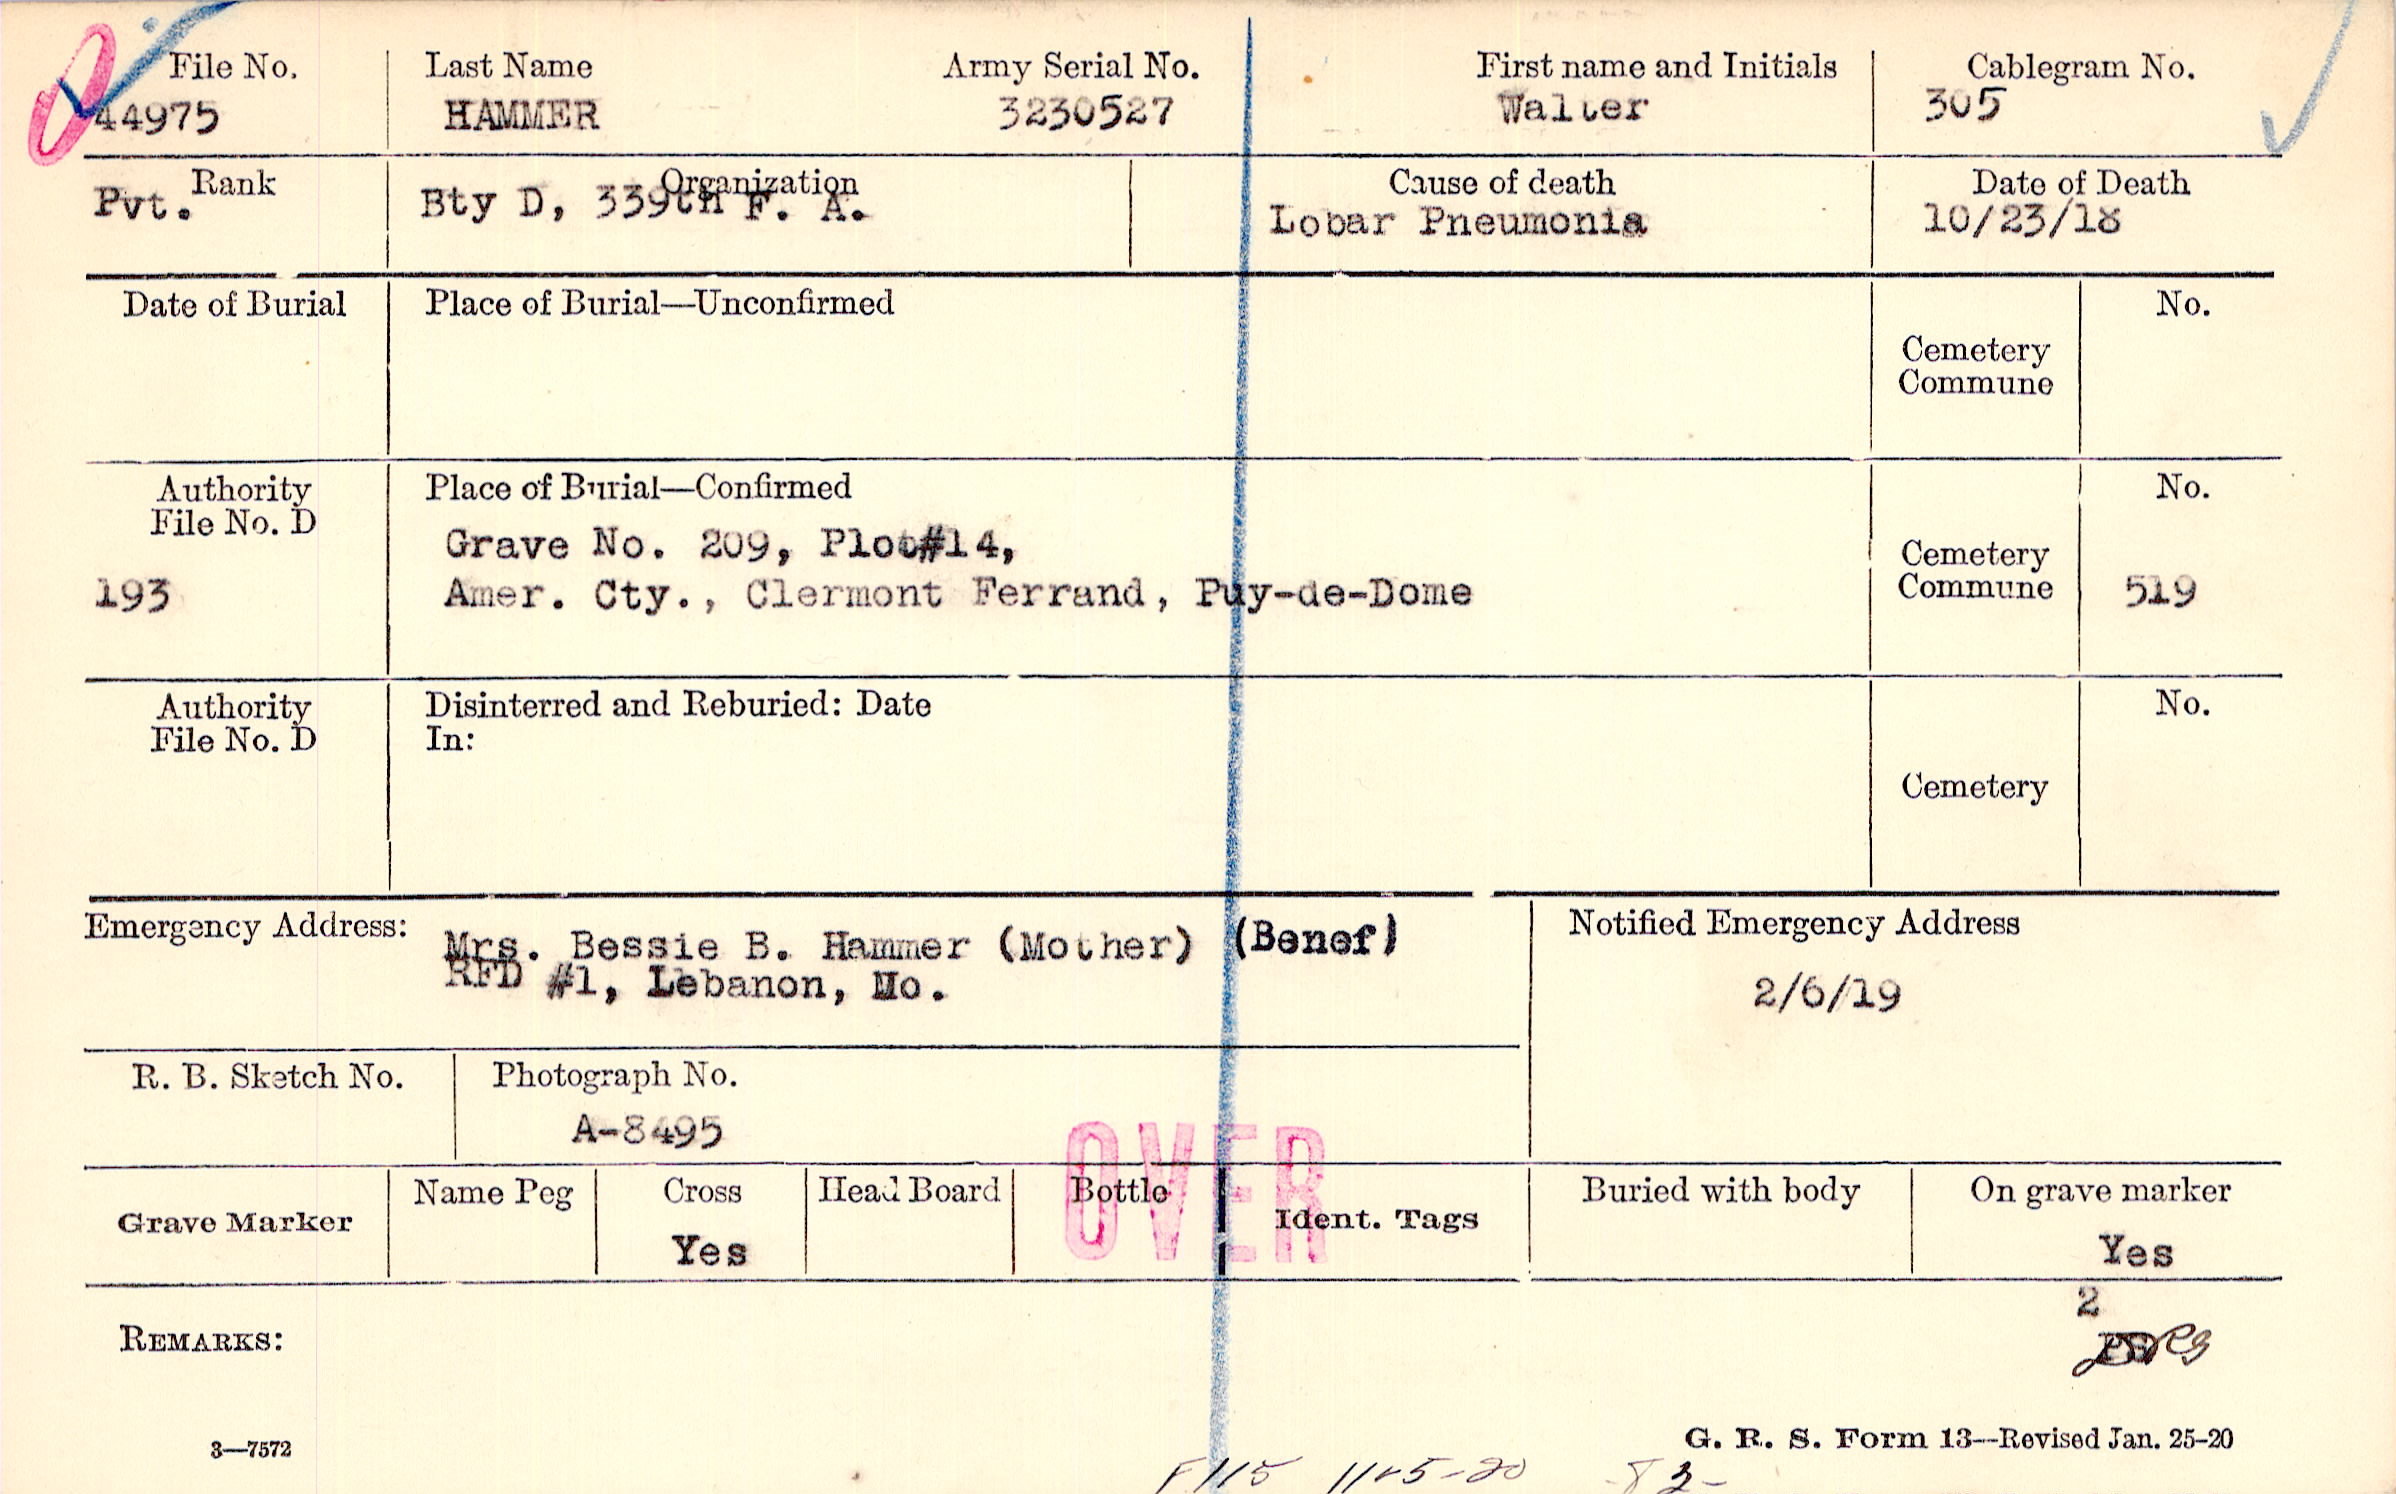 File No. Last Name Army Serial No. First name and Initials Cablegram No.
44975 HAMMER 3230527 Walter 305
Rank Organization Cause of death Date of Death
Pvt. Bty D, 339th F. A. Lobar Pneumonia 10/23/18
Date of Burial Place of Burial—Unconfirmed No.
Cemetery
Commune
Authority Place of Burial—Confirmed No.
File No. D
Grave No. 209, Plot#14,
Cemetery
193 Amer. Cty., Clermont Ferrand, Puy-de-Dome Commune 519
Authority Disinterred and Reburied: Date No.
File No. D In:
Cemetery
Emergency Address: Notified Emergency Address
Mrs. Bessie B. Hammer (Mother) (Benef)
RFD #1, Lebanon, Mo. 2/6/19
R. B. Sketch No. Photograph No.
A-8495
OVER
Grave Marker Name Peg Cross Head Board Bottle Ident. Tags Buried with body On grave marker
Yes Yes
2
REMARKS:
3—7572 G. R. S. Form 13—Revised Jan. 25-20